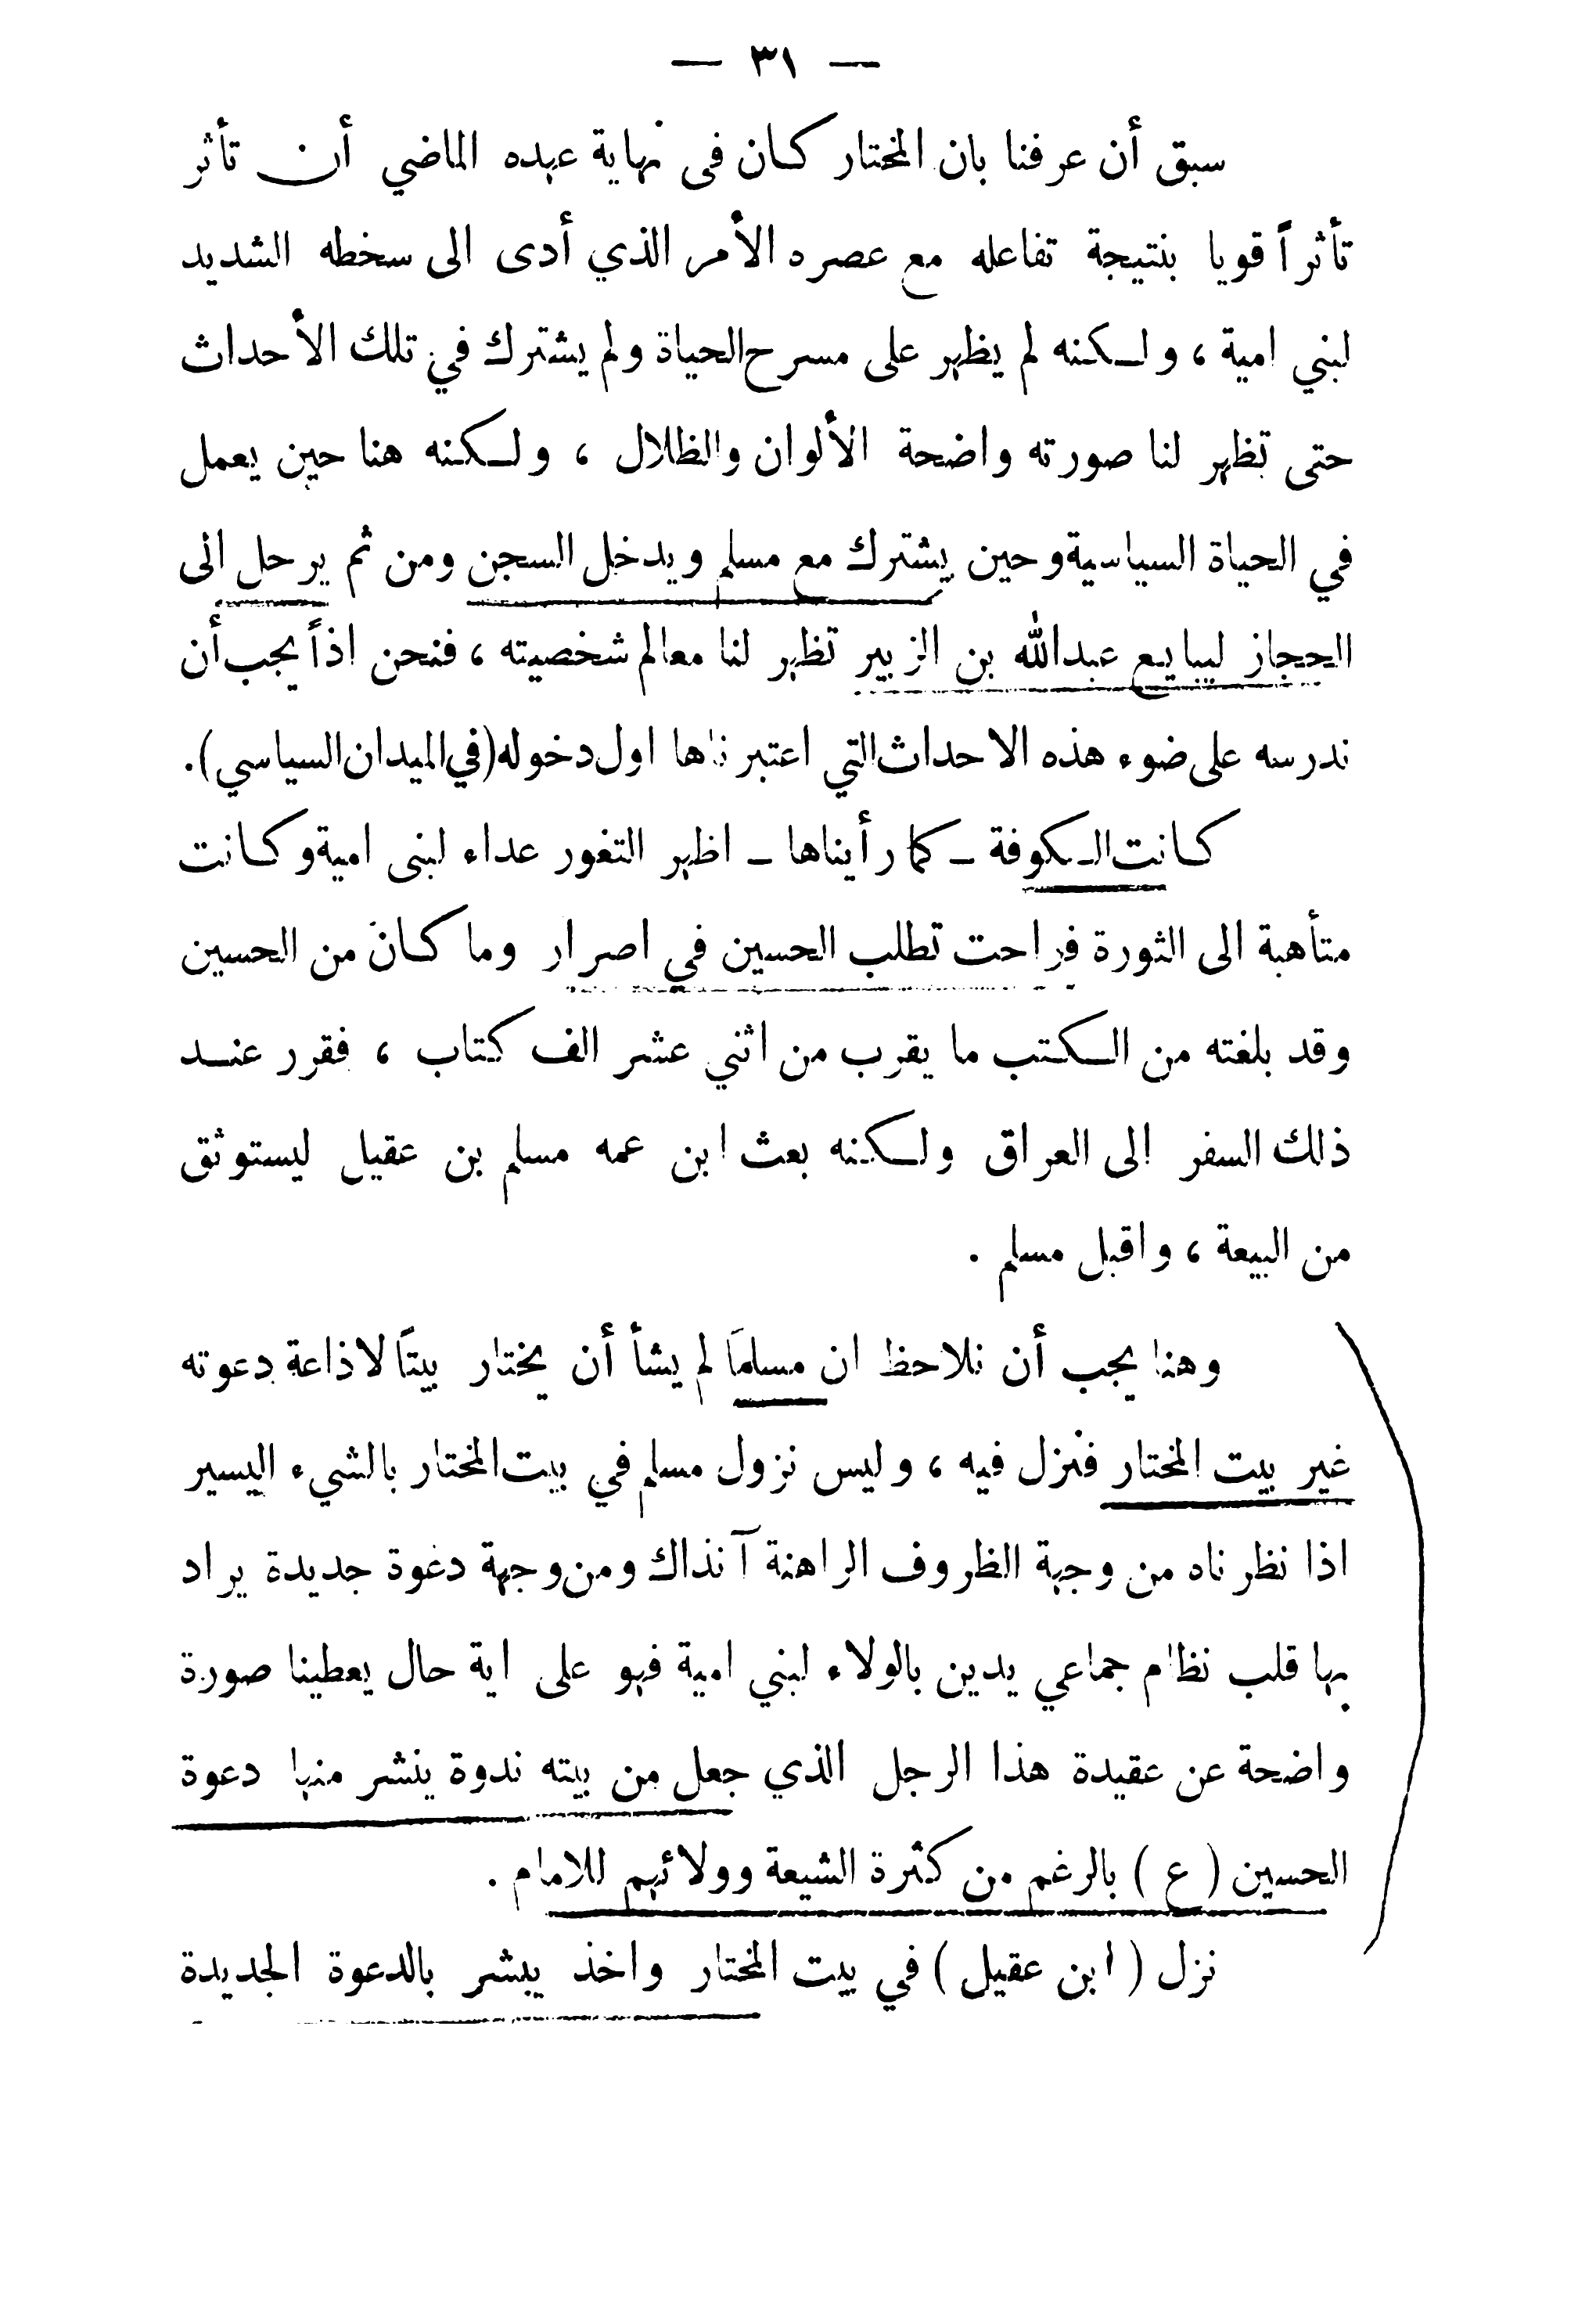 — ٣١ —
سبق أن عرفنا بان المختار كان فى نهاية عهده الماضي أن تأثر
تأثراً قويا بنتيجة تفاعله مع عصره الأمر الذي أدى الى سخطه الشديد
لبني امية ، ولكنه لم يظهر على مسرح الحياة ولم يشترك في تلك الأحداث
حتى تظهر لنا صورته واضحة الألوان والظلال ، ولكنه هنا حين يعمل
في الحياة السياسية وحين يشترك مع مسلم ويدخل السجن ومن ثم يرحل الى
الحجاز ليبايع عبدالله بن الزبير تظهر لنا معالم شخصيته ، فنحن اذاً يجب أن
ندرسه على ضوء هذه الاحداث التي اعتبرناها اول دخوله (في الميدان السياسي) .
كانت الكوفة – كما رأيناها – اظهر الثغور عداء لبنى امية وكانت
متأهبة الى الثورة فراحت تطلب الحسين في اصرار وما كان من الحسين
وقد بلغته من الكتب ما يقرب من اثني عشر الف كتاب ، فقرر عند
ذلك السفر الى العراق ولكنه بعث ابن عمه مسلم بن عقيل ليستوثق
من البيعة ، واقبل مسلم .
وهنا يجب أن نلاحظ ان مسلماً لم يشأ أن يختار بيتاً لاذاعة دعوته
غير بيت المختار فنزل فيه ، وليس نزول مسلم في بيت المختار بالشيء اليسير
اذا نظرناه من وجهة الظروف الراهنة آنذاك ومن وجهة دعوة جديدة يراد
بها قلب نظام جماعي يدين بالولاء لبني امية فهو على اية حال يعطينا صورة
واضحة عن عقيدة هذا الرجل الذي جعل من بيته ندوة ينشر منها دعوة
الحسين ( ع ) بالرغم من كثرة الشيعة وولائهم للامام .
نزل ( ابن عقيل ) في بيت المختار واخذ يبشر بالدعوة الجديدة